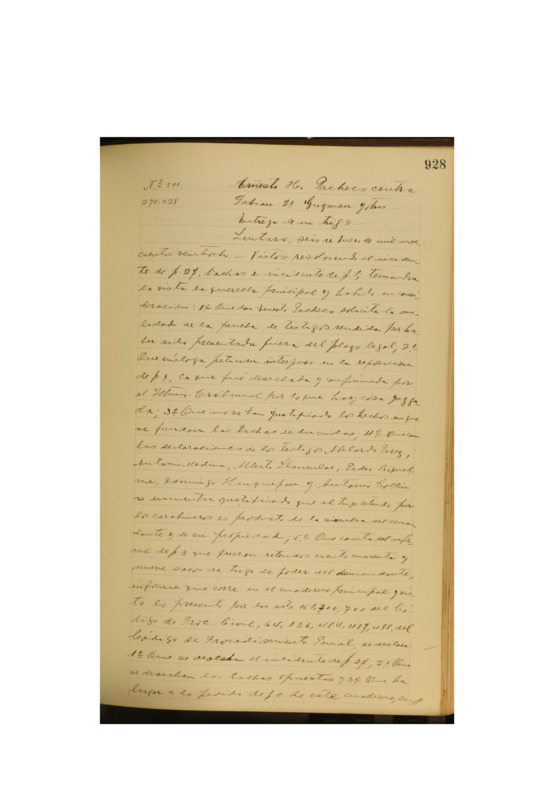 928
Nº Ernesto H. Pacheco contra
Fabian 2º Guzman y otro
Entrega de un trigo.-
Lautaro, seis de de mil nove
cientos veintiocho.- Vistos: resolviendo el inciden
te de p 27, tachas e incidente de p teniendo a
la vista la querella principal y habido en consi
deracion: 1º Que don Ernesto Pacheco solicita la nu
lidad de la prueba de testigos rendida por ha
ber sido presentada fuera del plazo legal; 2º
Que análoga peticion interpuso en la
de p. 9, la que fué desechada y confirmada por
el Iltmo. Tribunal por lo que hay cosa juzga
da; 3º Que no se han justificado los hechos en que
se fundan las tachas deducidas; 4º Que con
las declaraciones de los testigos, Abelardo Perez,
Antonio Medina, Alberto Llancaleo, Pedro Riquel
me, Domingo y Antonio Collin
se encuentra justificado que el trigo retenido por
los carabineros es producto de la siembra del deman
dante y de su propiedad; 5º Que consta del infor
me de p 2 que fueron retenidos ciento y
nueve sacos de trigo de poder del demandante,
informe que corre en el cuaderno principal y vis
to lo presente por los arts y del Có
digo de Proc. Civil, 64, 136, 484, 488, del
Código de Procedimiento Penal, se declara:
1º Que se desecha el incidente de p 27, 2º Que
se desechan las tachas opuestas y 3º Que ha
lugar a lo pedido de p. de este cuaderno,